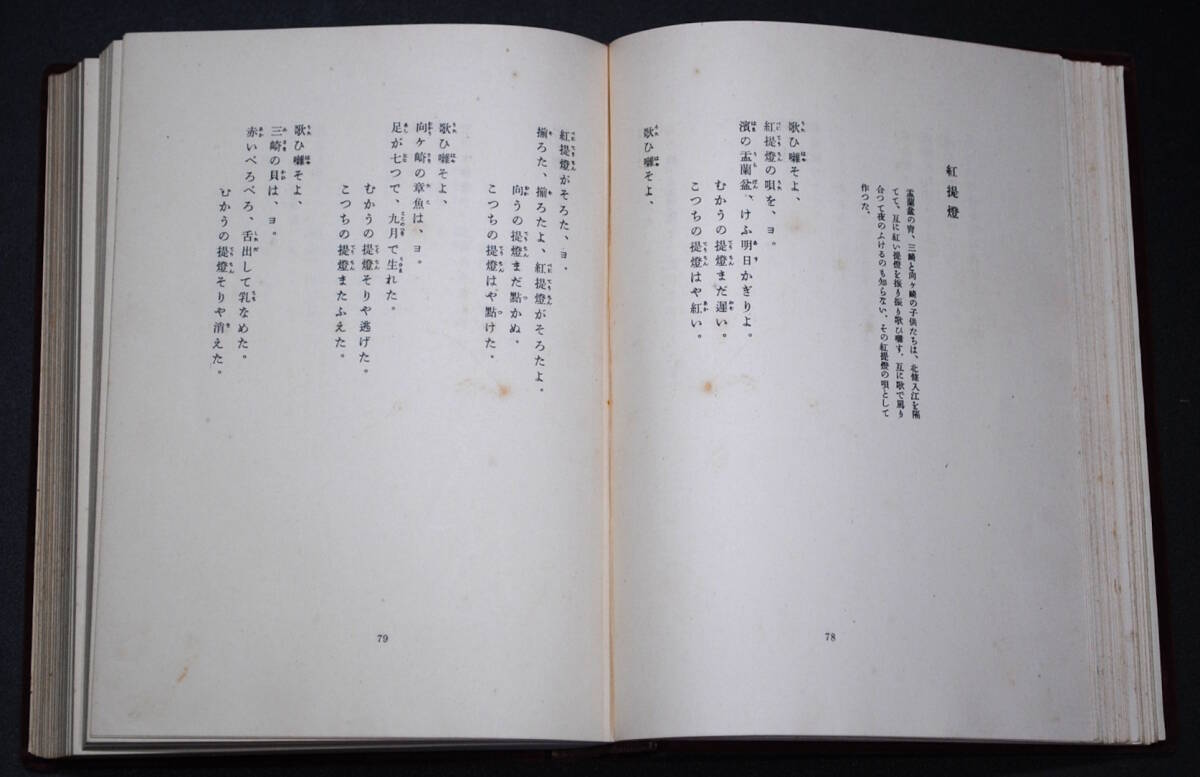 紅提燈
盂蘭盆の宵、三崎と向ヶ崎の子供たちは、北條入江を隔
てて、互に紅い提燈を振り振り歌ひ囃す、互に歌で罵り
合つて夜のふけるのも知らない、その紅提燈の唄として
作つた。
歌ひ囃そよ、
紅提燈の唄を、ヨ。
濱の盂蘭盆、けふ明日かぎりよ。
むかうの提燈まだ遲い。
こつちの提燈はや紅い。
歌ひ囃そよ、
78
紅提燈がそろた、ヨ、
揃ろた、揃ろたよ、紅提燈がそろたよ。
向うの提燈まだ點かぬ、
こつちの提燈はや點けた。
歌ひ囃そよ、
向ケ崎の章魚は、ヨ。
足が七つで、九月で生れた。
むかうの提燈そりや逃げた。
こつちの提燈またふえた。
歌ひ囃そよ、
三崎の貝は、ヨ。
赤いべろべろ、舌出して乳なめた。
むかうの提燈そりや消えた。
79